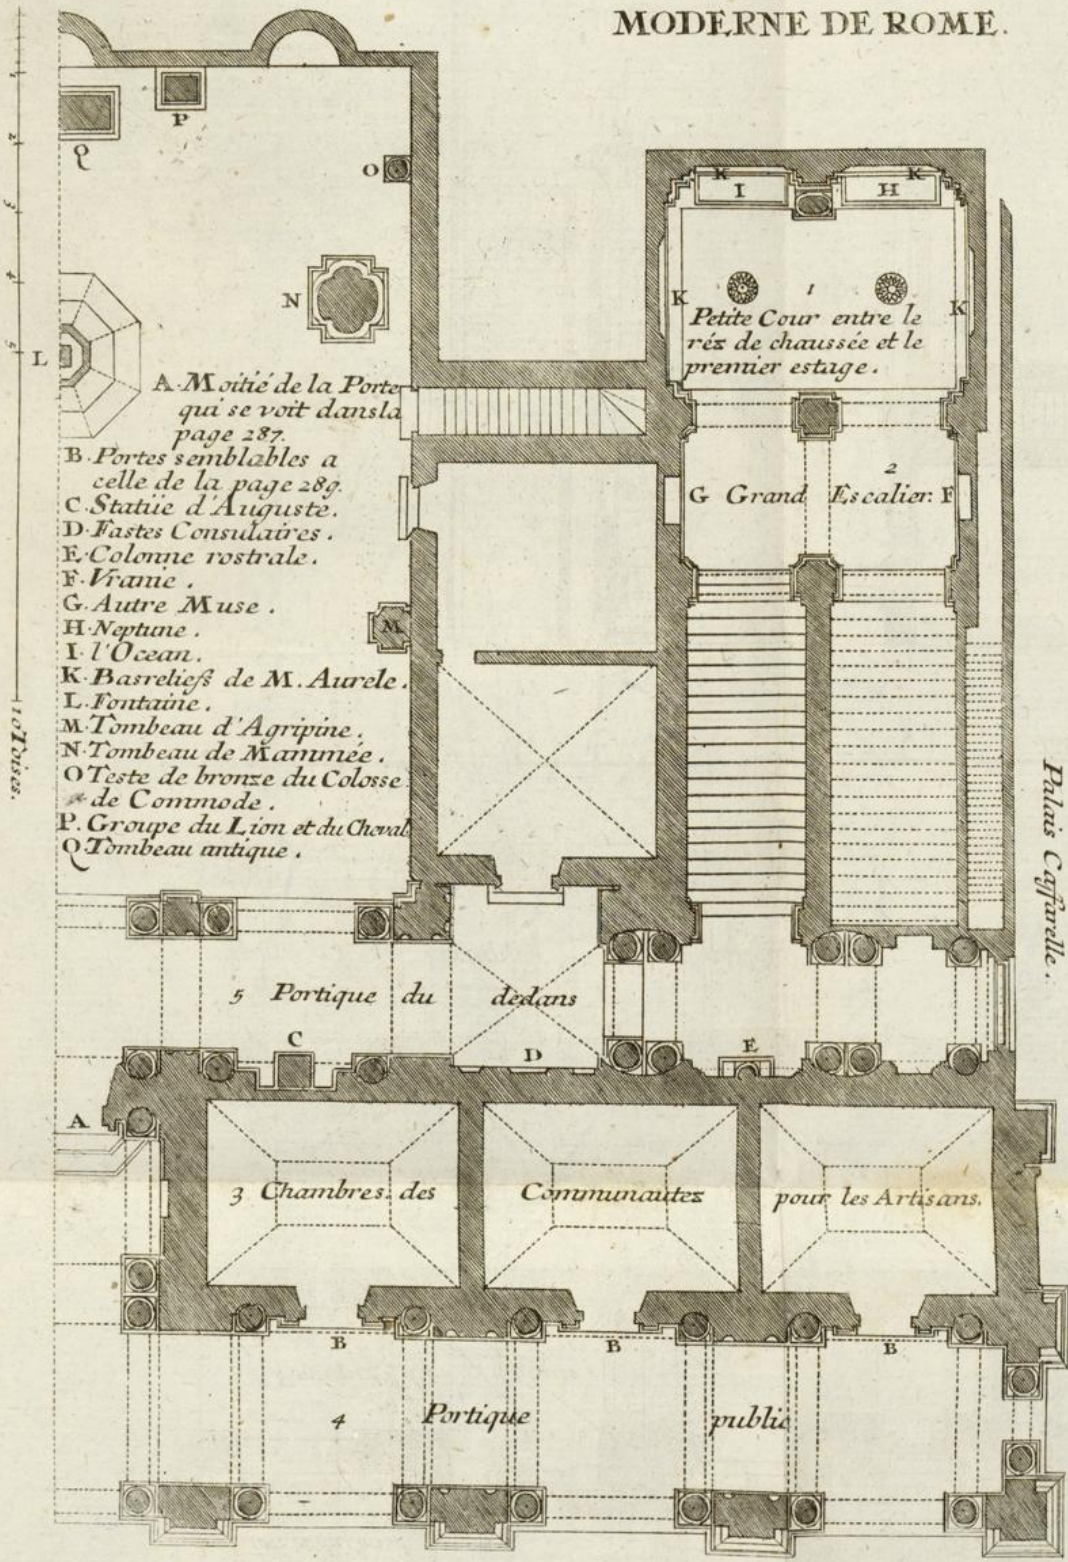 MODERNE DE ROME.
P
Q
O
N
L
K K
I H
1
K K
Petite Cour entre le
réz de chaussée et le
premier estage.
A. Moitié de la Porte
qui se voit dans la
page 287.
B. Portes semblables a
celle de la page 289.
C. Statüe d'Auguste.
D. Fastes Consulaires.
E. Colonne rostrale.
F. Vranie.
G. Autre Muse.
H. Neptune.
I. l'Ocean.
K. Basreliefs de M. Aurele.
L. Fontaine.
M. Tombeau d'Agripine.
N. Tombeau de Mammée.
O Teste de bronze du Colosse
de Commode.
P. Groupe du Lion et du Cheval
Q. Tombeau antique.
2
G Grand Escalier. F
M
1 2 3 4 5
10 Toises.
Palais Caffarelle.
5 Portique du dedans
C
D
E
A
3 Chambres des Communautez pour les Artisans.
B B B
4 Portique public